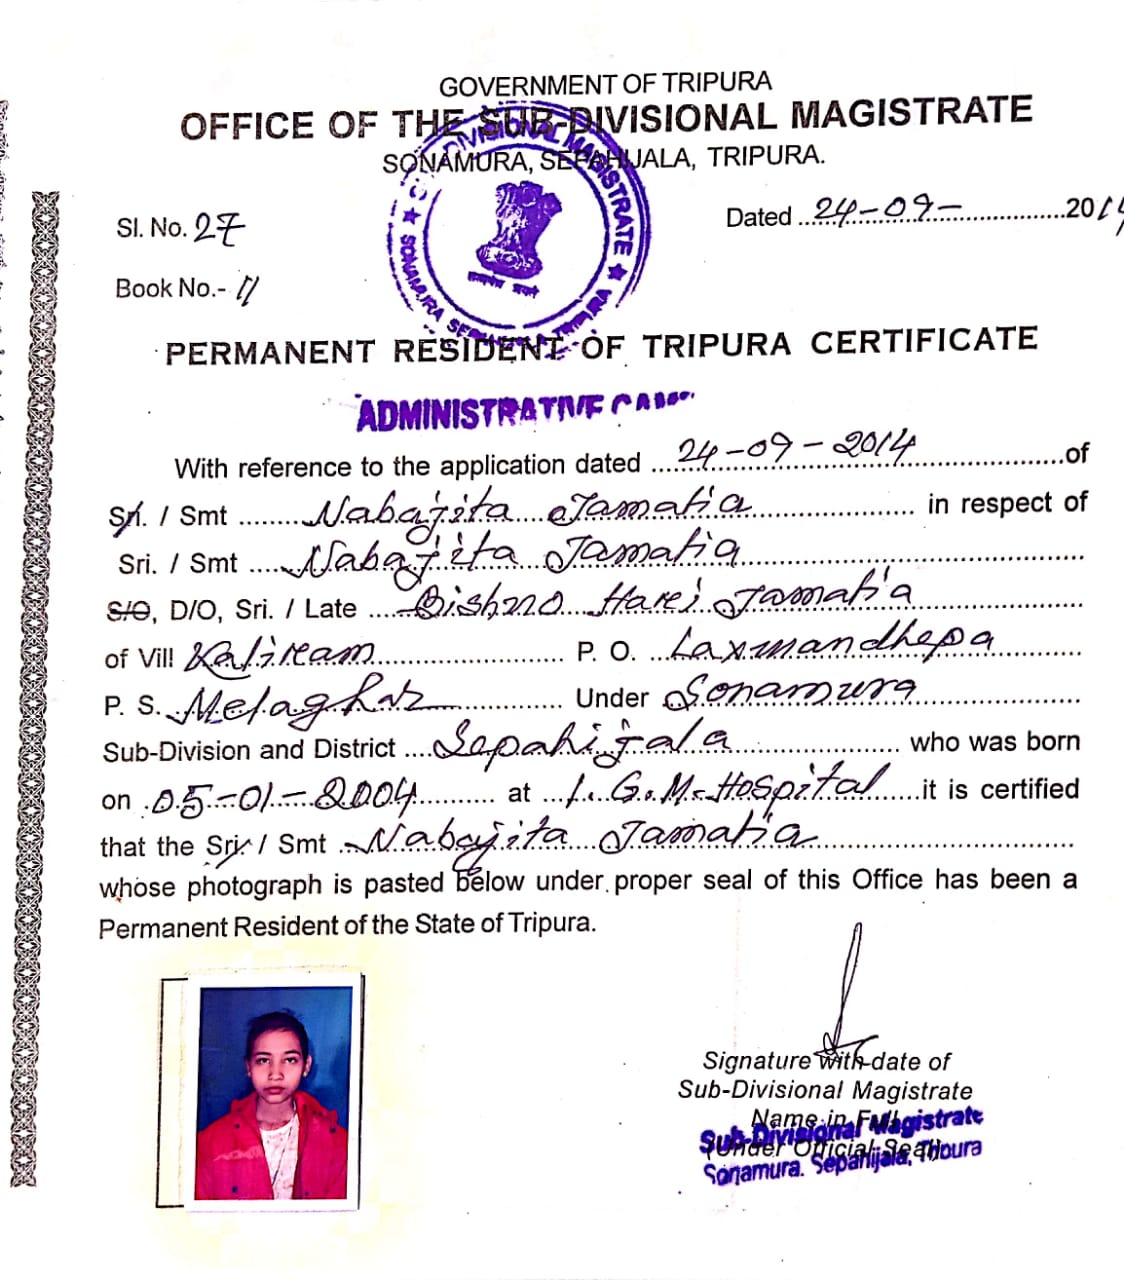 GOVERNMENT OF TRIPURA
OFFICE OF THE SUB-DIVISIONAL MAGISTRATE
SONAMURA, SEPAHIJALA, TRIPURA.
Sl. No. 27
Dated ..24-09-..................2014
Book No.- 11
SUB-DIVISIONAL MAGISTRATE ★ SONAMURA SEPAHIJALA TRIPURA ★
सत्यमेव जयते
PERMANENT RESIDENT OF TRIPURA CERTIFICATE
ADMINISTRATIVE CAMP
With reference to the application dated ...24-09-2014...of
Sri. / Smt ........Nabajita Jamatia................... in respect of
Sri. / Smt .....Nabajita Jamatia.....................
S/O, D/O, Sri. / Late ....Bishno Hari Jamatia...................
of Vill Kaliram........................ P. O. ...Laxmandhepa.........
P. S. Melaghar............... Under Sonamura...................
Sub-Division and District ....Sepahijala................... who was born
on .05-01-2004.......... at ...I.G.M. Hospital.....it is certified
that the Sri / Smt ...Nabajita Jamatia...........................
whose photograph is pasted below under proper seal of this Office has been a
Permanent Resident of the State of Tripura.
Signature with date of
Sub-Divisional Magistrate
Name in Full
(Under Official Seal)
Sub-Divisional Magistrate
Sonamura. Sepahijala, Tripura